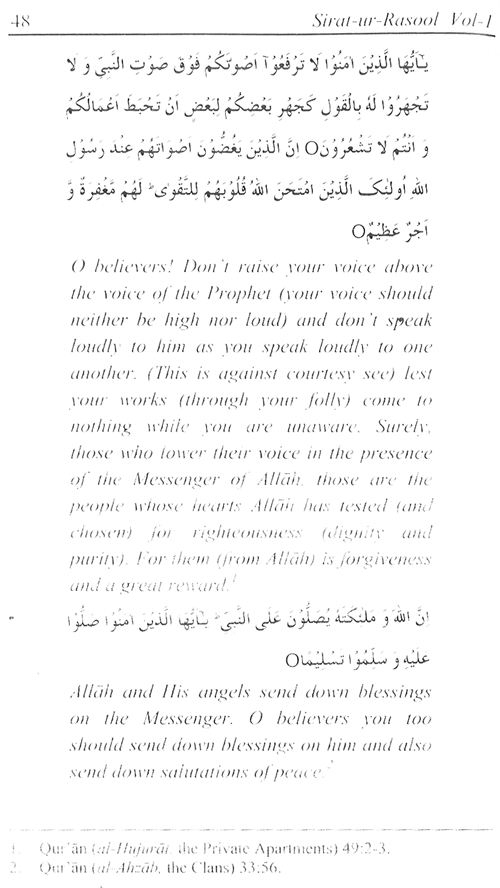 48 Sirat-ur-Rasool Vol-1
يٰۤاَيُّهَا الَّذِيْنَ اٰمَنُوْا لَا تَرْفَعُوْۤا اَصْوٰتَكُمْ فَوْقَ صَوْتِ النَّبِيِّ وَ لَا
تَجْهَرُوْا لَهٗ بِالْقَوْلِ كَجَهْرِ بَعْضِكُمْ لِبَعْضٍ اَنْ تَحْبَطَ اَعْمَالُكُمْ
وَ اَنْتُمْ لَا تَشْعُرُوْنَO اِنَّ الَّذِيْنَ يَغُضُّوْنَ اَصْوَاتَهُمْ عِنْدَ رَسُوْلِ
اللهِ اُولٰئِكَ الَّذِيْنَ امْتَحَنَ اللهُ قُلُوْبَهُمْ لِلتَّقْوٰى ؕ لَهُمْ مَّغْفِرَةٌ وَّ
اَجْرٌ عَظِيْمٌO
O believers! Don't raise your voice above
the voice of the Prophet (your voice should
neither be high nor loud) and don't speak
loudly to him as you speak loudly to one
another. (This is against courtesy see) lest
your works (through your folly) come to
nothing while you are unaware. Surely,
those who lower their voice in the presence
of the Messenger of Allāh, those are the
people whose hearts Allāh has tested (and
chosen) for righteousness (dignity and
purity). For them (from Allāh) is forgiveness
and a great reward.1
اِنَّ اللهَ وَ مَلٰئِكَتَهٗ يُصَلُّوْنَ عَلَى النَّبِيِّ ؕ يٰۤاَيُّهَا الَّذِيْنَ اٰمَنُوْا صَلُّوْا
عَلَيْهِ وَ سَلِّمُوْا تَسْلِيْمًاO
Allāh and His angels send down blessings
on the Messenger. O believers you too
should send down blessings on him and also
send down salutations of peace.2
1. Qur'ān (al-Hujurāt, the Private Apartments) 49:2-3.
2. Qur'ān (al-Ahzāb, the Clans) 33:56.